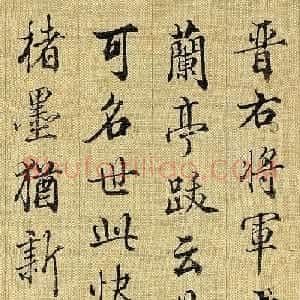 晋右将軍
蘭亭跋云
可名世此快
楮墨猶新